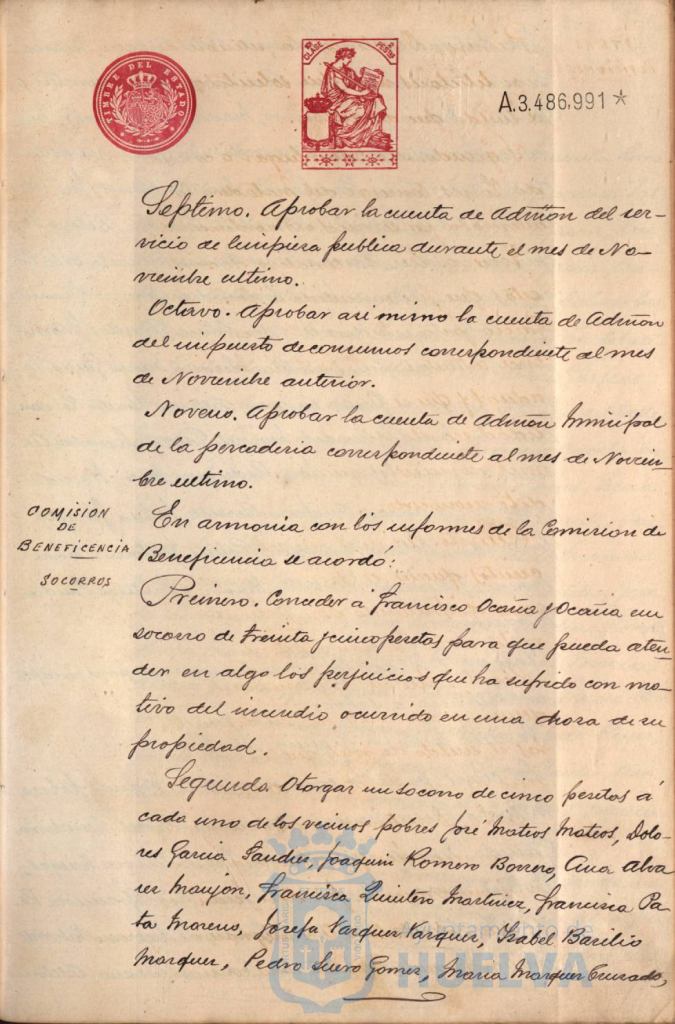 TIMBRE DEL ESTADO
10ª CLASE 2 PESETAS
A.3.486,991*
Septimo. Aprobar la cuenta de Admon del ser-
vicio de limpiesa publica durante el mes de No-
viembre ultimo.
Octavo. Aprobar asi mimo la cuenta de Admon
del impuesto de consumos correspondiente al mes
de Noviembre anterior.
Noveno. Aprobar la cuenta de Admon Municipal
de la pescaderia correspondiente al mes de Noviem-
bre ultimo.
COMISION
DE
BENEFICENCIA
SOCORROS
En armonia con los informes de la Comision de
Beneficencia se acordó:
Primero. Conceder á Francisco Ocaña y Ocaña un
socorro de treinta y cinco pesetas para que pueda aten-
der en algo los perjuicios que ha sufrido con mo-
tivo del incendio ocurrido en una choza de su
propiedad.
Segundo Otorgar un socorro de cinco pesetas á
cada uno de los vecinos pobres José Mateos Mateos, Dolo-
res Garcia, Joaquin Romero Borrero, Ana Alva-
rez Maujón, Francisca Quintero Martinez, Francisca Pa-
ta Moreno, Josefa Vazquez Vazquez, Isabel Basilio
Marquez, Pedro Suero Gomez, Maria Marquez Cruzado,
Ayuntamiento de
HUELVA